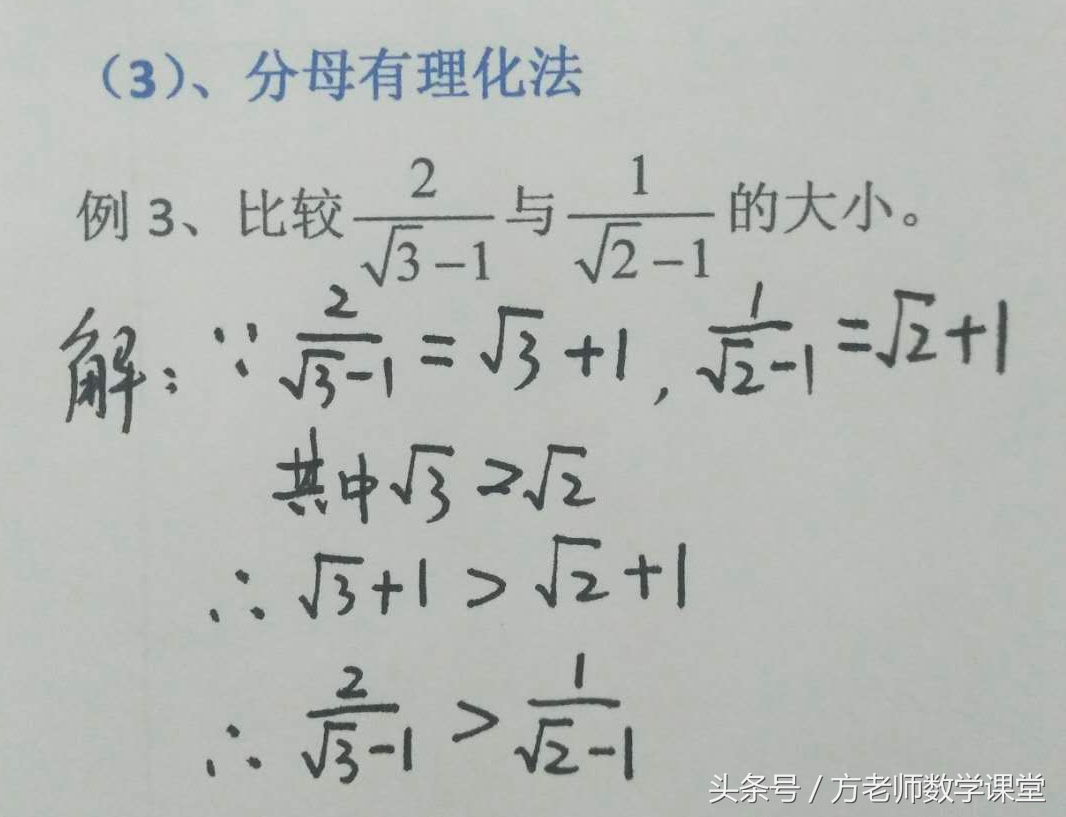 （3）、分母有理化法
例 3、比较 2/(√3-1) 与 1/(√2-1) 的大小。
解：∵ 2/(√3-1) = √3+1 , 1/(√2-1) = √2+1
其中√3 > √2
∴ √3+1 > √2+1
∴ 2/(√3-1) > 1/(√2-1)
头条号 / 方老师数学课堂